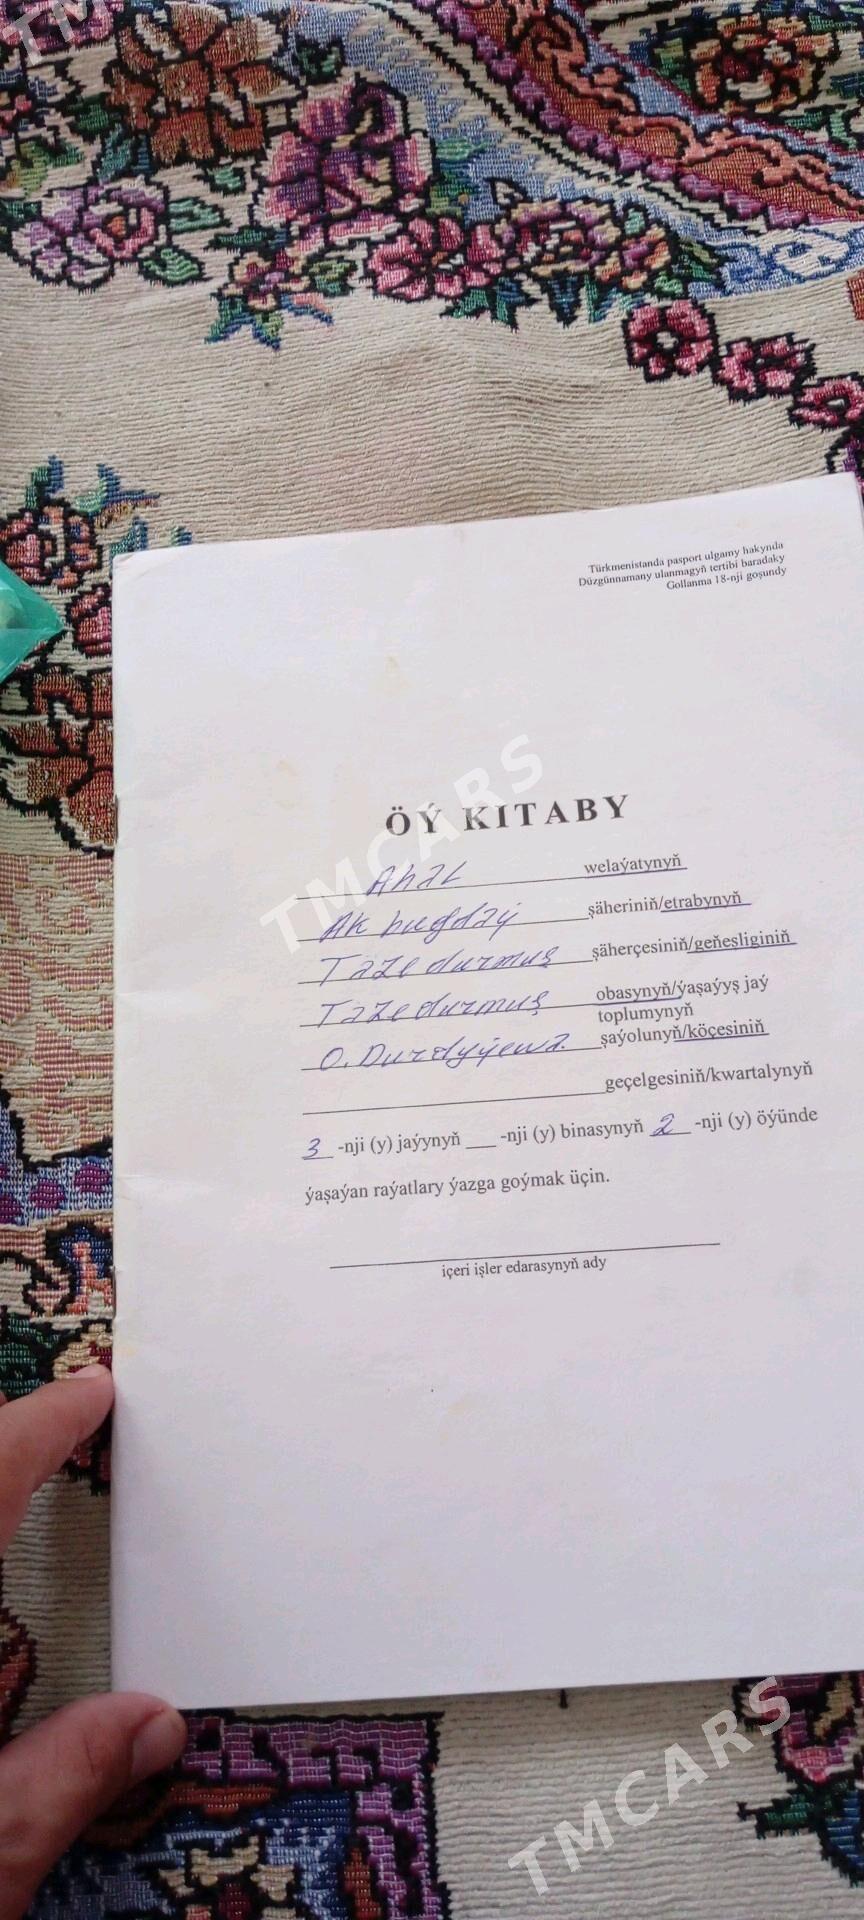 TMCARS
Türkmenistanda pasport ulgamy hakynda
Düzgünnamany ulanmagyň tertibi baradaky
Gollanma 18-nji goşundy
ÖÝ KITABY
Ahal welaýatynyň
Ak bugdaý şäheriniň/etrabynyň
Täze durmuş şäherçesiniň/geňeşliginiň
Täze durmuş obasynyň/ýaşaýyş jaý
toplumynyň
O. Durdyýewa. şaýolunyň/köçesiniň
geçelgesiniň/kwartalynyň
3 -nji (y) jaýynyň ___ -nji (y) binasynyň 2 -nji (y) öýünde
ýaşaýan raýatlary ýazga goýmak üçin.
içeri işler edarasynyň ady
TMCARS
TM